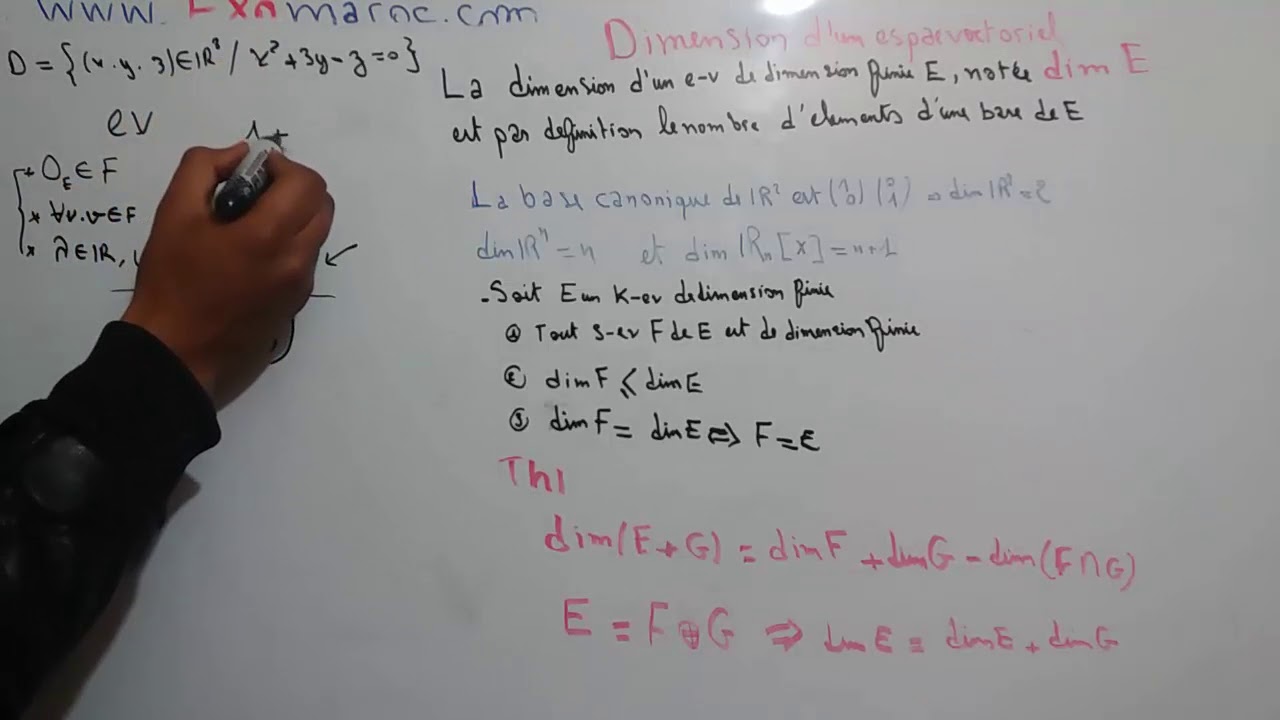 www.Exomaroc.com
D = {(x.y.z)∈IR³ / x²+3y-z=0}
ev
* 0_E ∈ F
* ∀u.v∈F
* λ∈IR,
1+
Dimension d'un espace vectoriel
La dimension d'un e-v de dimension finie E, notée dim E
est par definition le nombre d'elements d'une base de E
La base canonique de IR² est (1 0) (0 1) ⇒ dim IR² = 2
dim IRⁿ = n et dim IRₙ[X] = n+1
- Soit E un K-ev de dimension finie
① Tout s-ev F de E est de dimension finie
② dim F ≤ dim E
③ dim F = dim E ⇔ F = E
Th1
dim(E+G) = dim F + dim G - dim(F∩G)
E = F⊕G ⇒ dim E = dim E + dim G